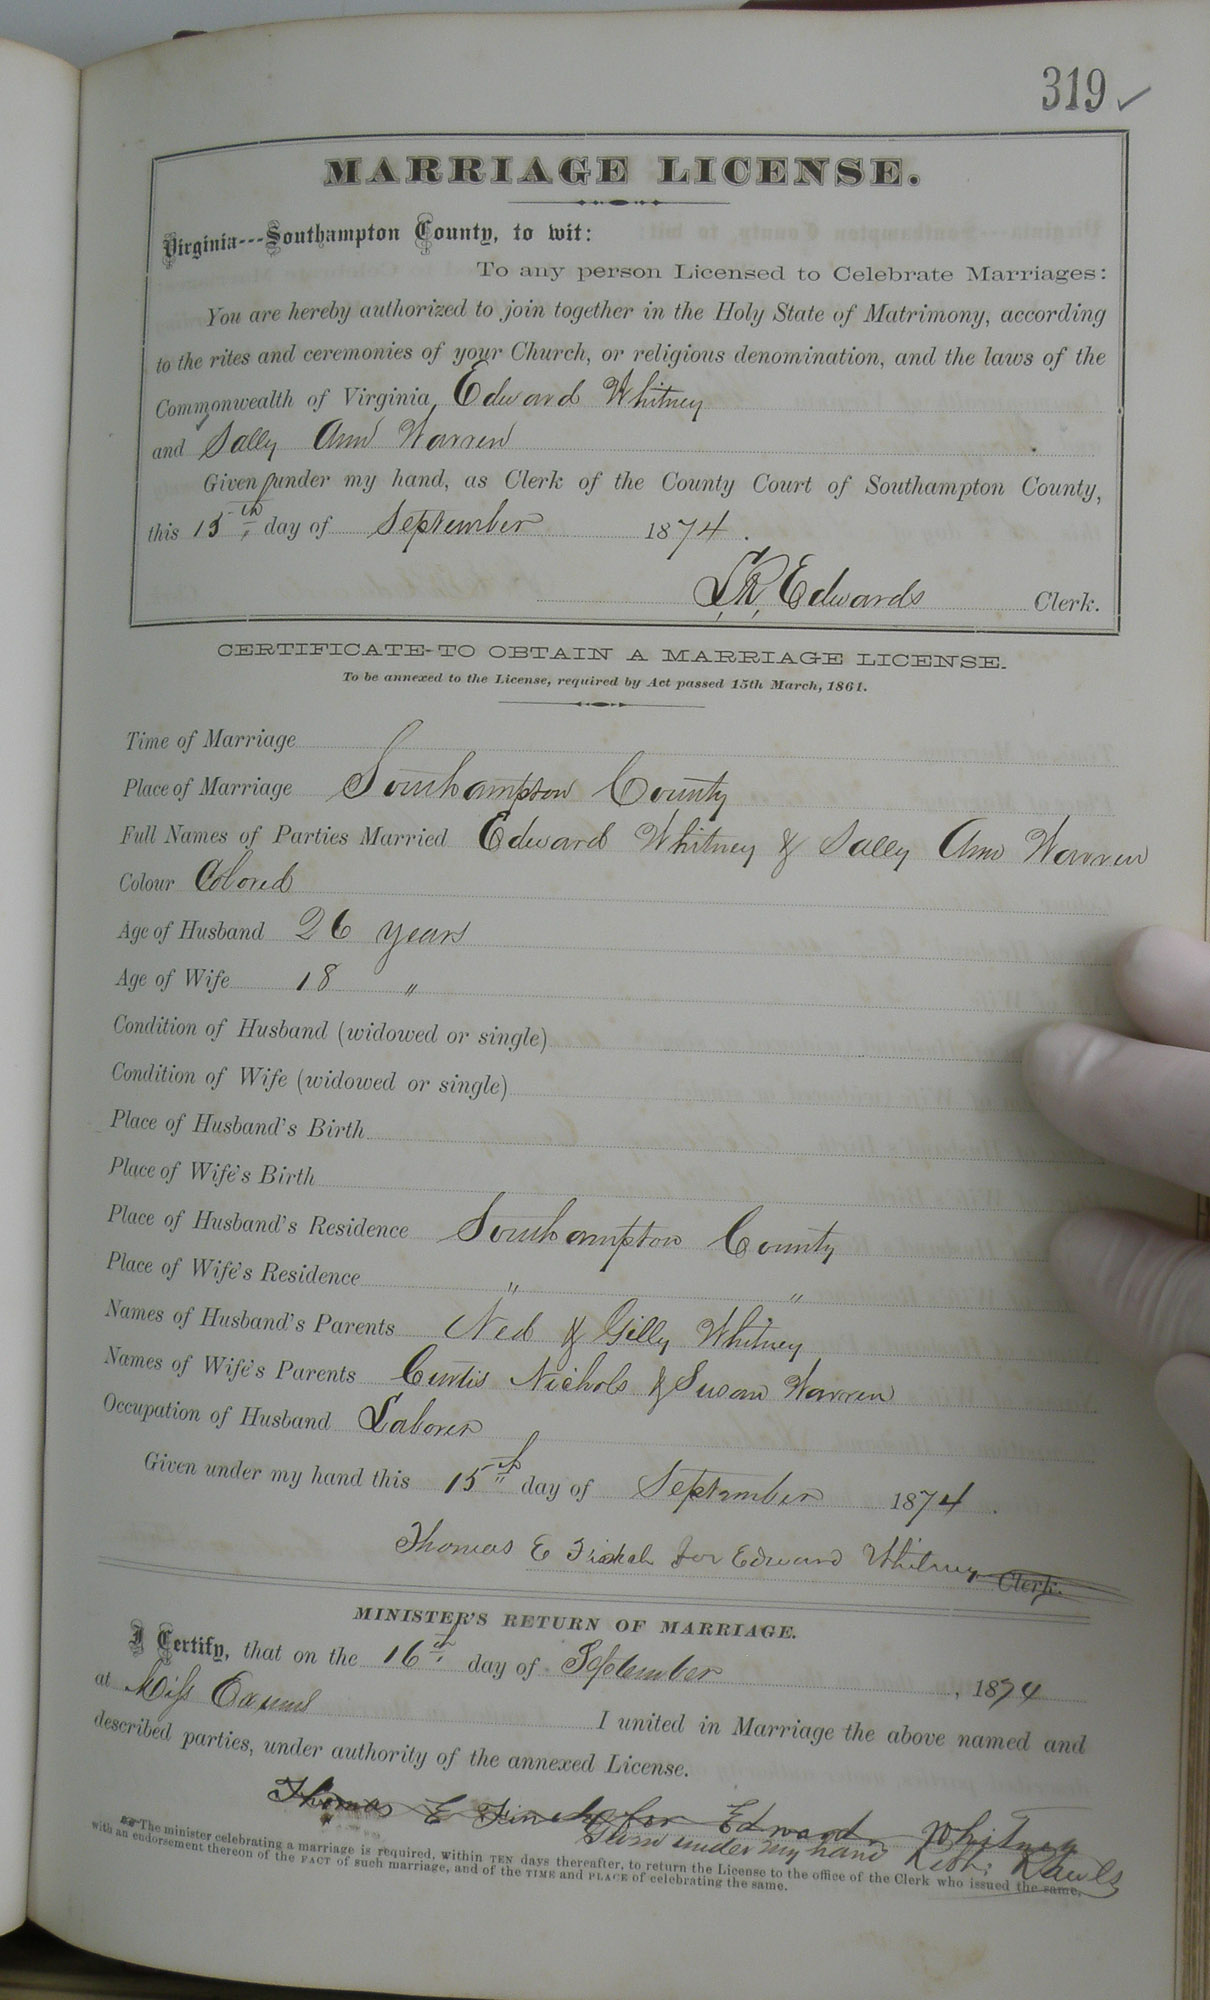 319 ✓
MARRIAGE LICENSE.
Virginia---Southampton County, to wit:
To any person Licensed to Celebrate Marriages:
You are hereby authorized to join together in the Holy State of Matrimony, according
to the rites and ceremonies of your Church, or religious denomination, and the laws of the
Commonwealth of Virginia, Edward Whitney
and Sally Ann Warren
Given under my hand, as Clerk of the County Court of Southampton County,
this 15th day of September 1874.
L.R. Edwards Clerk.
CERTIFICATE-TO OBTAIN A MARRIAGE LICENSE.
To be annexed to the License, required by Act passed 15th March, 1861.
Time of Marriage
Place of Marriage Southampton County
Full Names of Parties Married Edward Whitney & Sally Ann Warren
Colour Colored
Age of Husband 26 years
Age of Wife 18 "
Condition of Husband (widowed or single)
Condition of Wife (widowed or single)
Place of Husband's Birth
Place of Wife's Birth
Place of Husband's Residence Southampton County
Place of Wife's Residence " "
Names of Husband's Parents Ned & Gilly Whitney
Names of Wife's Parents Curtis Nichols & Susan Warren
Occupation of Husband Laborer
Given under my hand this 15th day of September 1874.
Thomas E for Edward Whitney Clerk.
MINISTER'S RETURN OF MARRIAGE.
I Certify, that on the 16th day of September, 1874
at Miss I united in Marriage the above named and
described parties, under authority of the annexed License.
Thomas E for Edward Whitney
Given under my hand Rawls
The minister celebrating a marriage is required, within TEN days thereafter, to return the License to the office of the Clerk who issued the same,
with an endorsement thereon of the FACT of such marriage, and of the TIME and PLACE of celebrating the same.